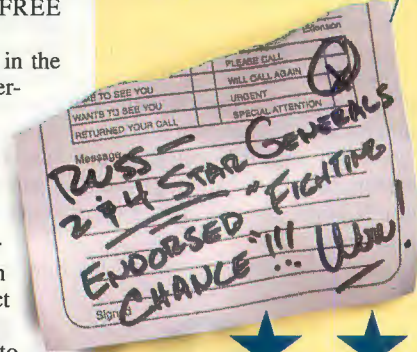 FREE
in the
er-
n
ct
to
Extension
PLEASE CALL
TO SEE YOU
WILL CALL AGAIN
WANTS TO SEE YOU
URGENT
RETURNED YOUR CALL
SPECIAL ATTENTION
Message
RUSS-
2 & 4 STAR GENERALS
ENDORSED "FIGHTING
CHANCE"!!! WOW!
Signed